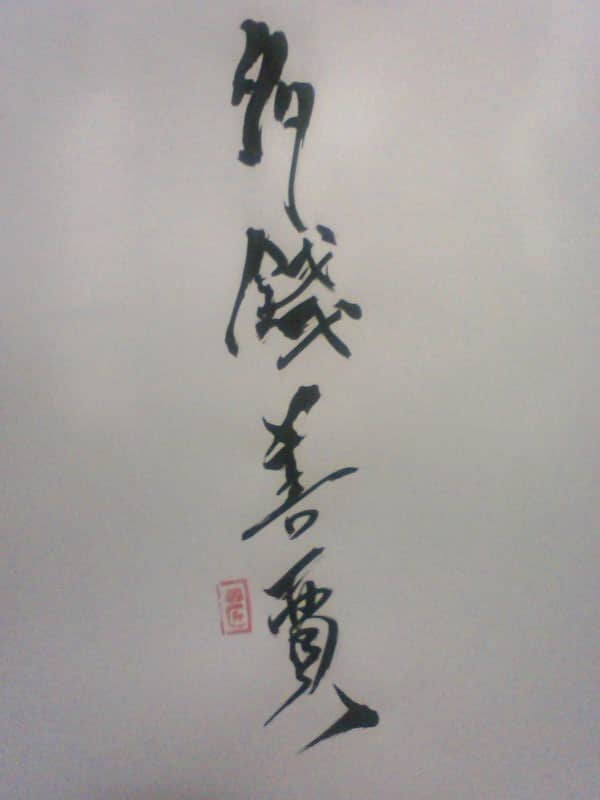 多錢善賈